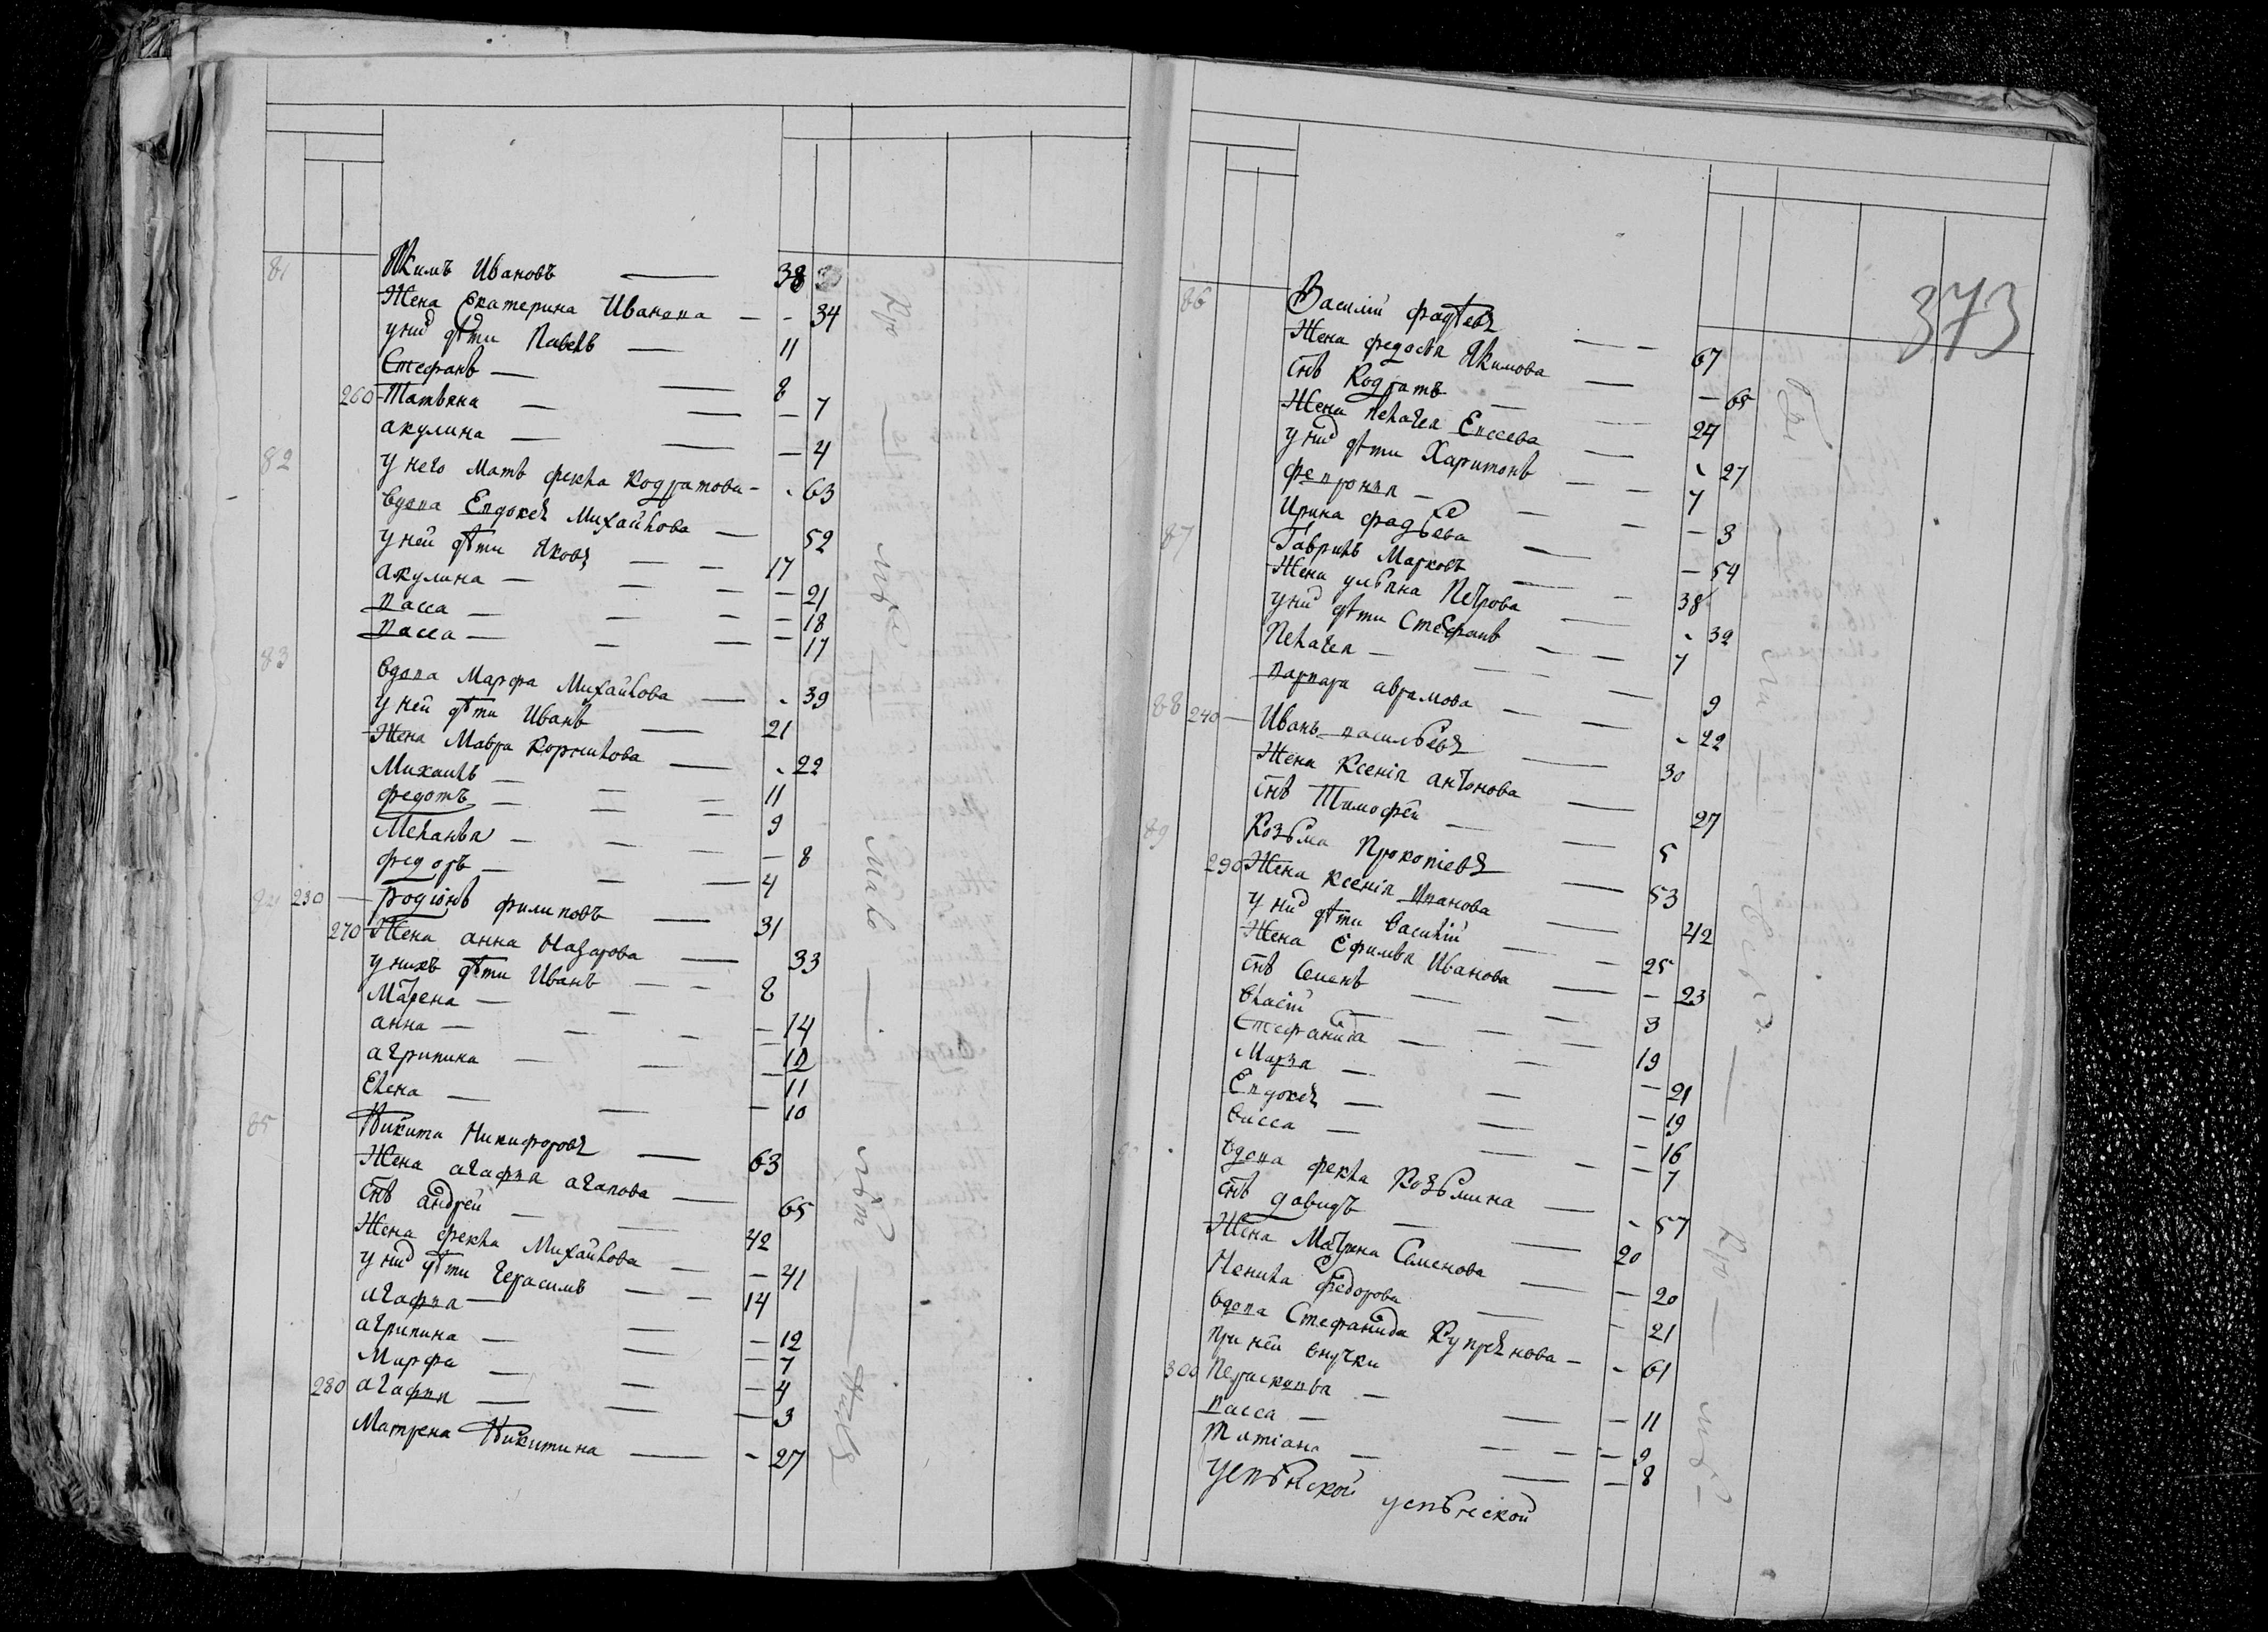 81 Якимъ Ивановъ — 38
Жена Екатерина Иванова — - 34
у них дѣти Павелъ — 11
Стефанъ — — 8
260 Татьяна — — — 7
акулина — — — 4
82 у него мать фекла кодратова - - 63
вдова Евдокея Михайлова — 52
у ней дѣти Яковъ — — 17
акулина — — — — 21
васса — — — — 18
васса — — — — 17
83 вдова Марфа Михайлова — - 39
у ней дѣти Иванъ — 21
Жена Мавра Корнилова — - 22
Михаилъ — — — 11
федотъ — — — 9
Меланья — — — — 8
федоръ — — — 4
230 — родіонъ филиповъ — 31
270 Жена анна Назарова — 33
у нихъ дѣти Иванъ — — 8
Матрена — — — 14
анна — — — — 12
агрипина — — — 11
Елена — — — 10
85 Никита Никифоровъ — 63
Жена агафья агапова — 65
снъ андрей — — 42
Жена фекла Михайлова — — 41
у них дѣти Герасимъ — — 14
агафья — — — 12
агрипина — — — 7
Марфа — — — 4
280 агафья — — — 3
Матрена Никитина — - 27
373
86 Василій фадѣевъ — — 67
Жена федосья Якимова — — 65
снъ Кодратъ — — 24
Жена пелагея Евсева — - 27
у них дѣти Харитонъ — — 7
февронья — — — — 3
Ирина фадѣева — — 54
87 Гаврилъ Марковъ — — 38
Жена ульяна Петрова — - 32
у них дѣти Стефанъ — — 7
Пелагея — — — 9
варвара аврамова — — - 22
88 240 — Иванъ васильевъ — 30
Жена Ксенія антонова — 27
снъ Тимофей — 5
89 Козьма Прокопіевъ — 53
290 Жена ксенія Иванова — 42
у них дѣти василій — — 25
Жена Ефимья Иванова — — 23
снъ Семенъ — — 3
власій — — — 19
Стефанида — — — 21
Марья — — — 19
Евдокея — — — 16
васса — — — — 7
вдова фекла Козьмина — - 57
снъ давидъ — — 20
Жена Матрена Семенова — — 20
Ненила федорова — — 21
вдова Стефанида Купреянова — - 61
при ней внучки
300 Парасковья — — — 11
васса — — — — 9
Татіана — — — 8
успѣнской успѣнской